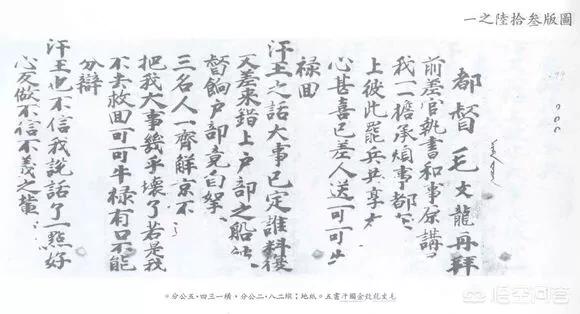 圖版叁拾陸之一
都督毛文龍再拜
前差官執書和事原講
我一一擔承煩事都
上彼此罷兵共享太
心甚喜已差人送可可牛
祿回
汗王之話大事已定誰料後
又差來錯上戶部之船
督餉戶部竟白拏
三名人一齊解京不
把我大事幾乎壞了若是我
不去救回可可牛祿有口不能
分辯
汗王也不信我說話了一點好
心反做不信不義之輩
毛文龍致金國汗書五。紙地；縱二八．二公分，橫一三四．五公分。
悟空问答